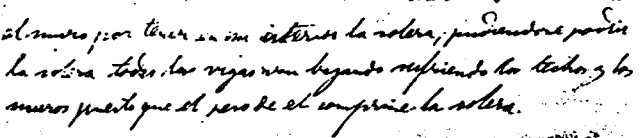 al muro, por tener en su interior la solera, pudiendose podrir
la solera todas las vigas van bajando sufriendo los techos y los
muros puesto que el peso de el comprime la solera.